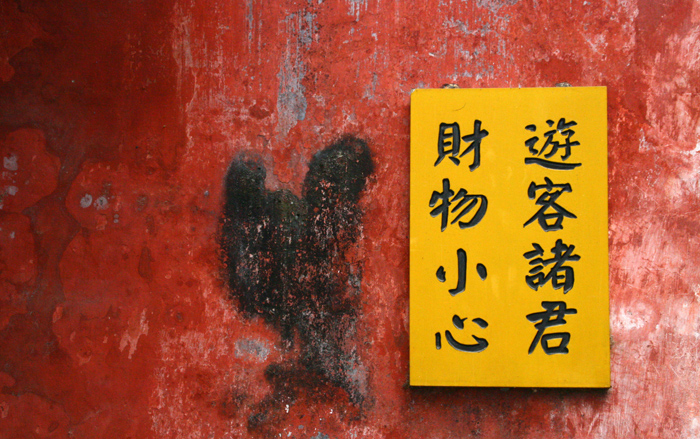 遊客諸君
財物小心